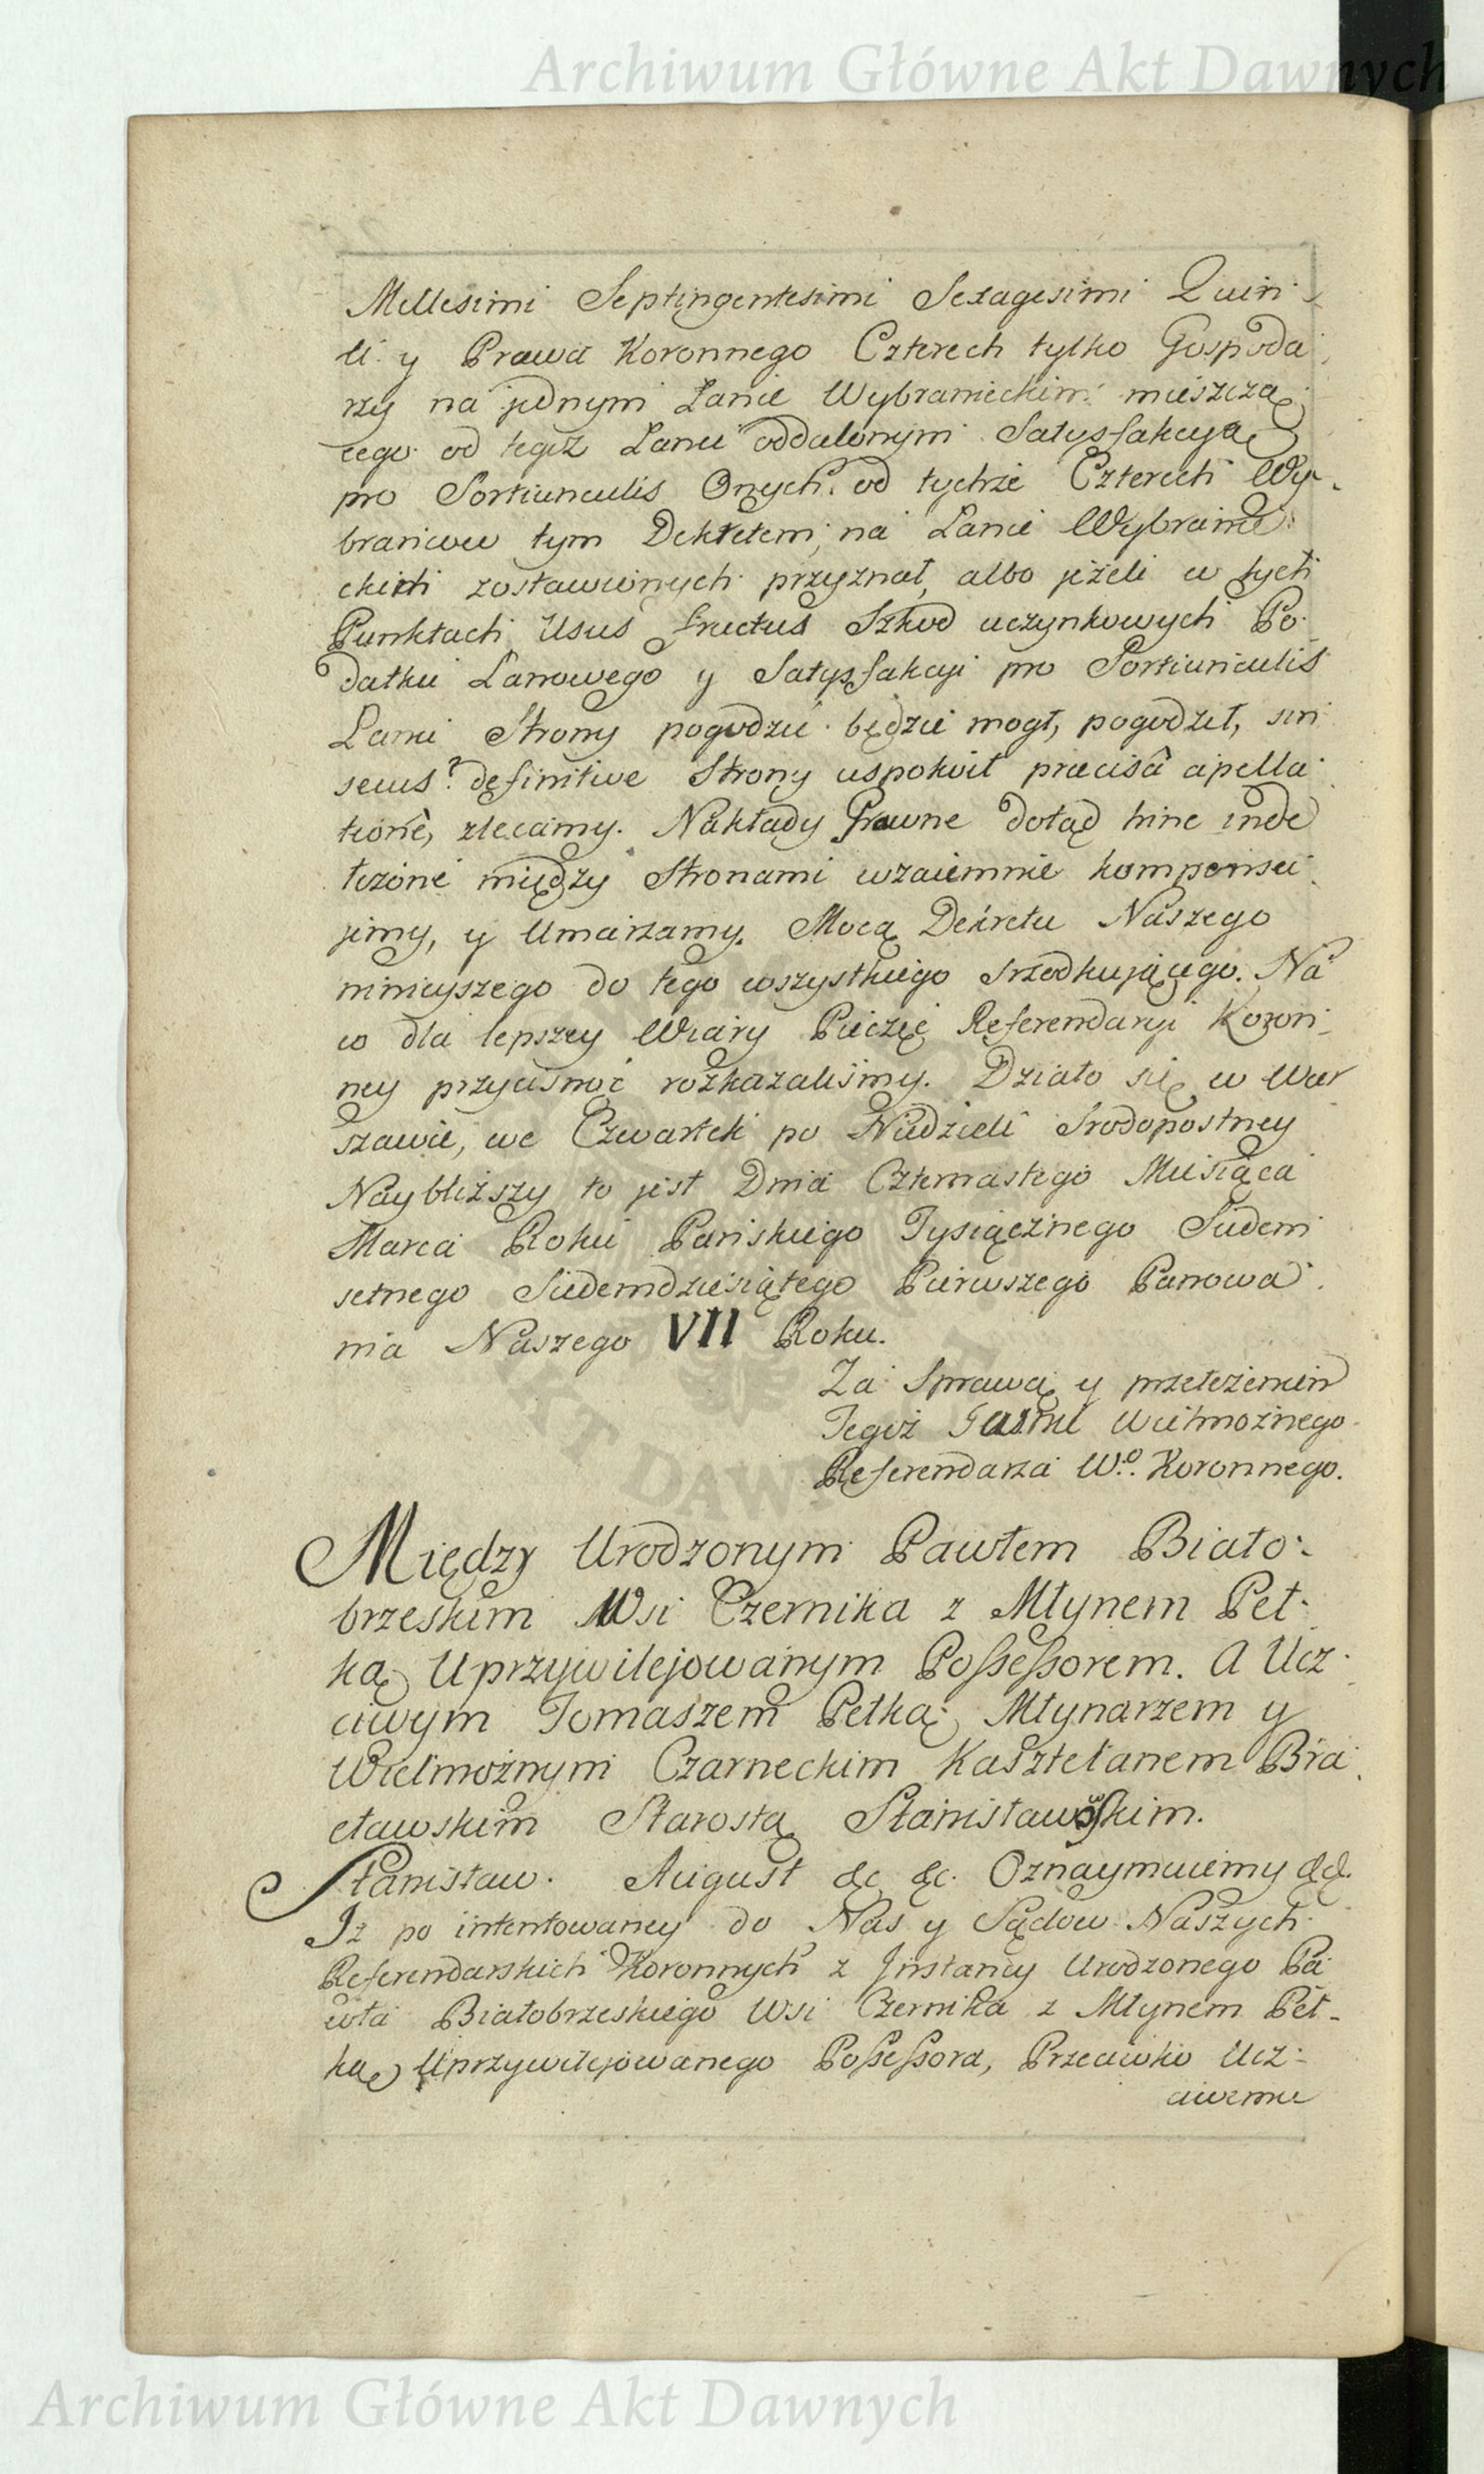 Archiwum Główne Akt Dawnych
Millesimi Septingentesimi Sexagesimi Quin-
ti y Prawa Koronnego Czterech tylko Gospoda-
rzy na jednym Łanie Wybranieckim mieszczą-
cego od tegoż Łanu oddalonym Satysfakcyą
pro Portiunculis Onych od tychże Czterech Wy-
brańcow tym Dekretem na Łanie Wybranie-
ckich zostawionych przyznał, albo jeżeli w tych
Punktach Usus fructus Szkod uczynkowych Po-
datku Łanowego y Satysfakcyi pro Portiunculis
Łanu Strony pogodzić będzie mogł, pogodził, sin
secus definitive Strony uspokoił praecisâ apella-
tione, zlecamy. Nakłady Prawne dotąd hinc inde
łożone między Stronami wzaiemnie kompensu-
jemy, y Umarzamy. Mocą Dekretu Naszego
ninieyszego do tego wszystkiego srzodkującego. Na
co dla lepszey Wiary Pieczęć Referendaryi Koron-
ney przycisnąć rozkazaliśmy. Działo się w War-
szawie, we Czwartek po Niedzieli Srodopostney
Naybliższy to jest Dnia Czternastego Miesiąca
Marca Roku Pańskiego Tysiącznego Siedem
setnego Siedemdziesiątego Pierwszego Panowa-
nia Naszego VII Roku.
Za Sprawą y przełożeniem
Tegoż Jaśnie Wielmożnego
Referendarza W.º Koronnego.
Między Urodzonym Pawłem Biało-
brzeskim Wsi Czernika z Młynem Peł-
ką Uprzywilejowanym Possessorem. A Ucz-
ciwym Tomaszem Pełką Młynarzem y
Wielmożnym Czarneckim Kasztelanem Bra-
cławskim Starostą Stanisławowskim.
Stanisław August &c &c. Oznaymuiemy &c &c.
Iż po intentowaney do Nas y Sądow Naszych
Referendarskich Koronnych z Instancyi Urodzonego Pa-
wła Białobrzeskiego Wsi Czernika z Młynem Peł-
ką Uprzywilejowanego Possessora, Przeciwko Ucz-
ciwemu
Archiwum Główne Akt Dawnych